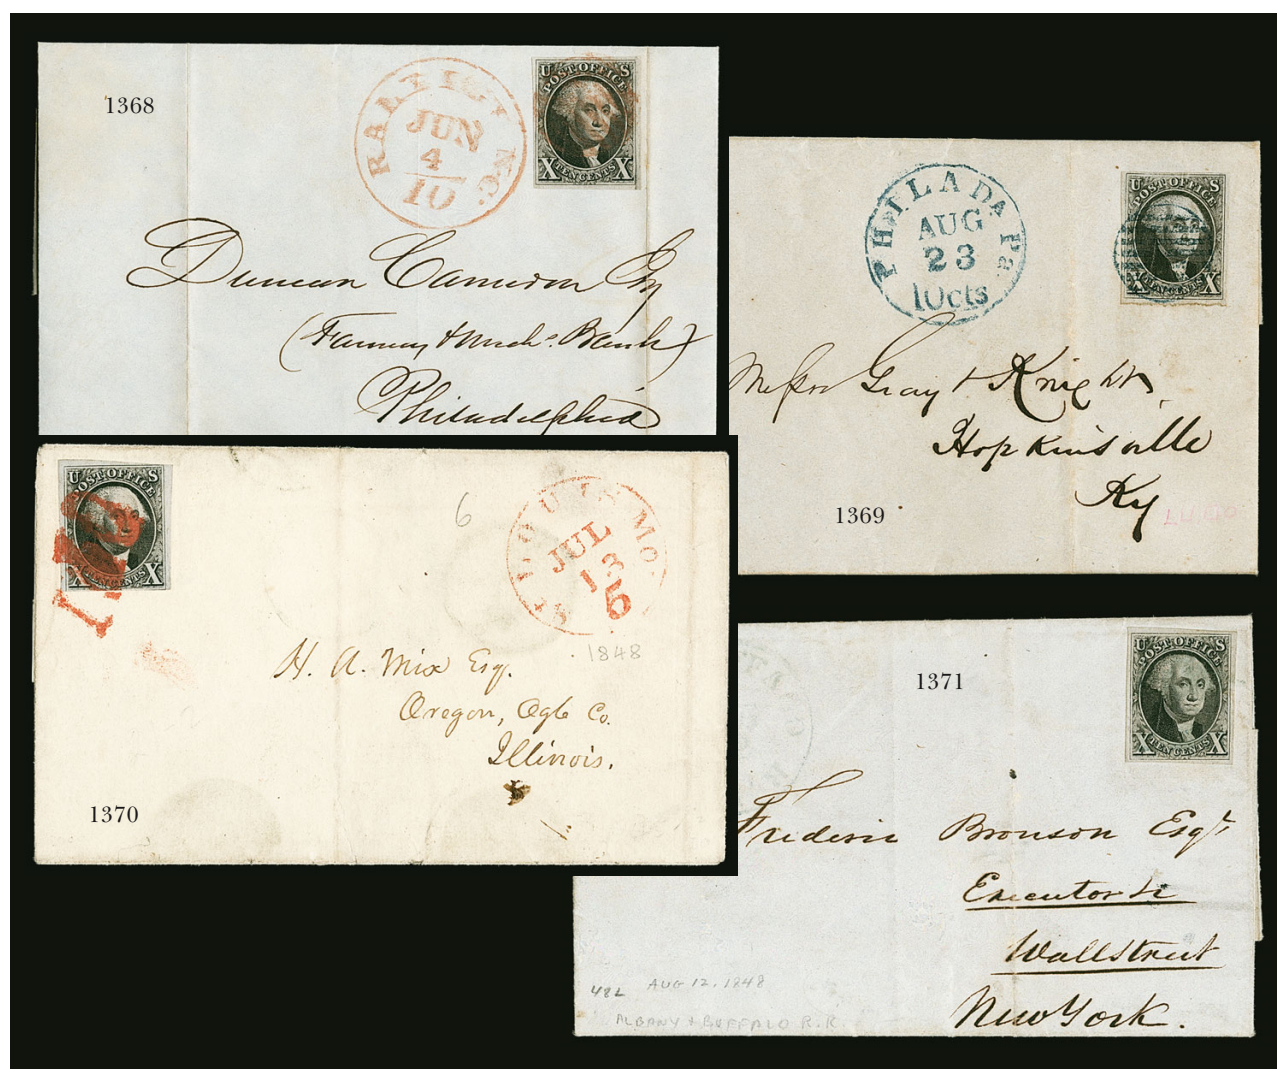 1368
RALEIGH N.C.
JUN
4
10
U S
POST OFFICE
X TEN CENTS X
Duncan Cameron Esq
(Farmers & Mech^s. Bank)
Philadelphia
PHILADA Pa.
AUG
23
10cts
U S
POST OFFICE
X TEN CENTS X
Messrs Gray & Knight
Hopkinsville
Ky
1369
U S
POST OFFICE
X TEN CENTS X
6
ST. LOUIS MO.
JUL
13
5
1848
H. A. Mix Esq.
Oregon, Ogle Co.
Illinois.
1370
U S
POST OFFICE
X TEN CENTS X
1371
Frederic Bronson Esqr.
Executor &c
Wall Street
New York.
482 AUG 12. 1848
ALBANY + BUFFALO R.R.